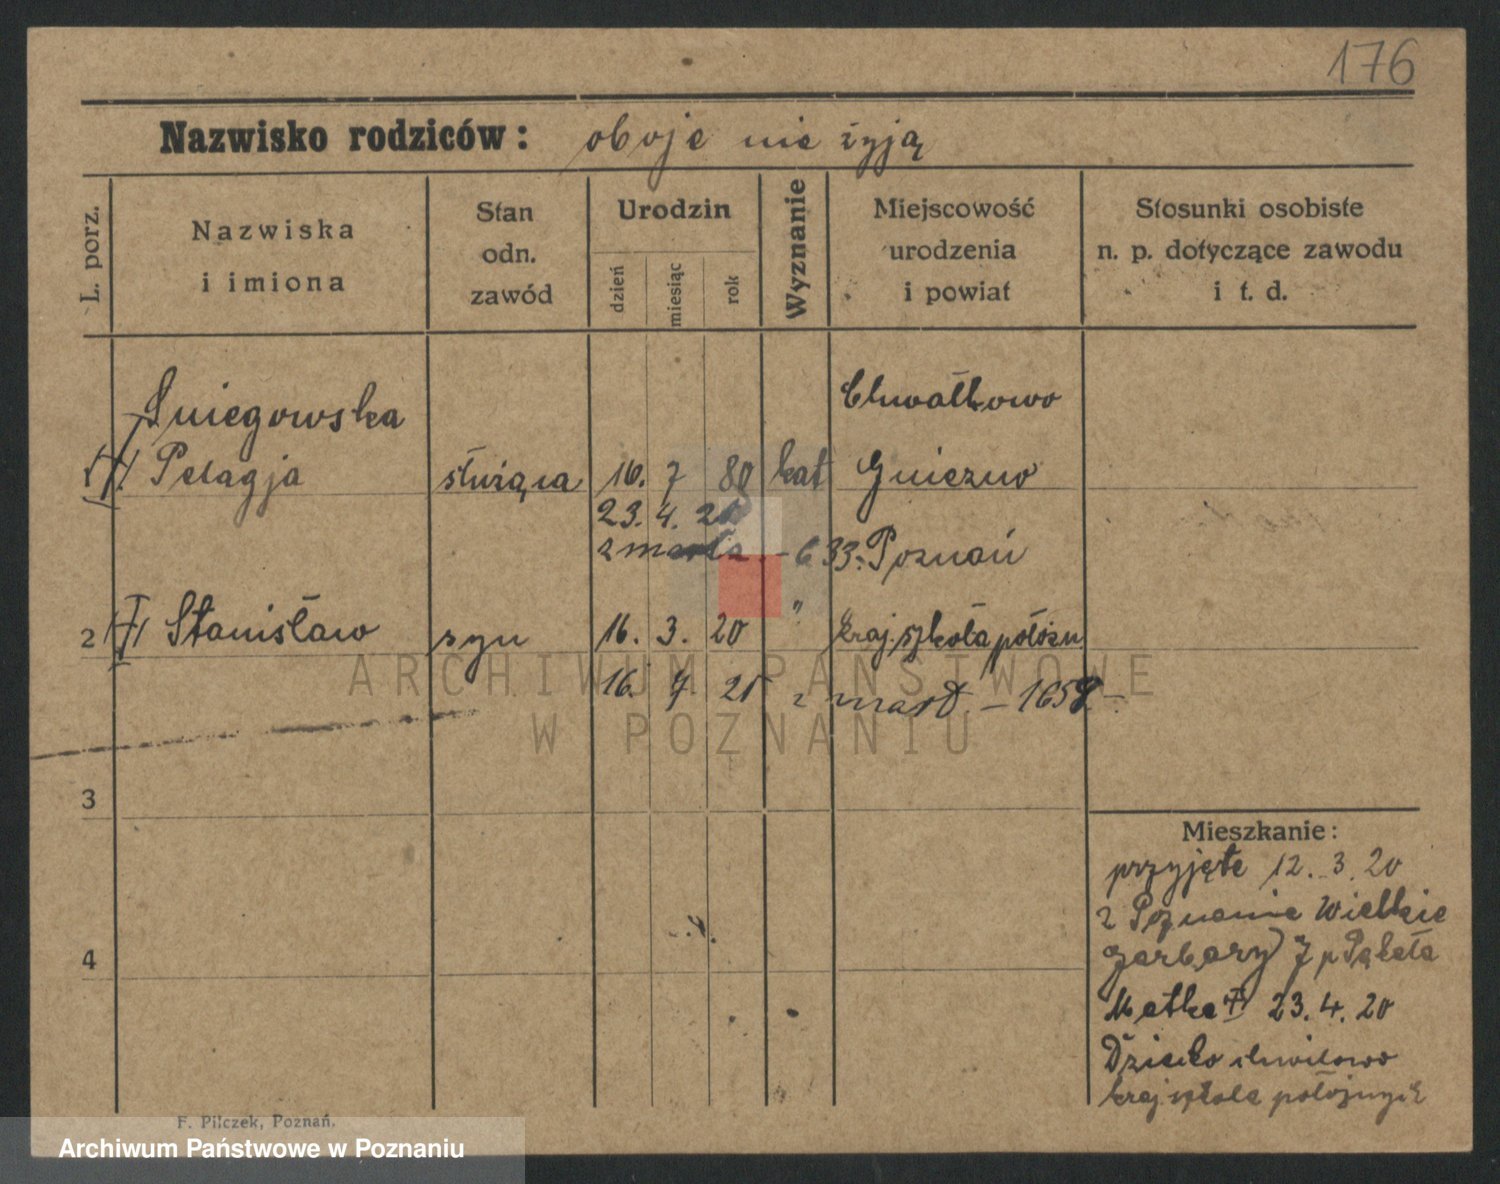 176
Nazwisko rodziców: oboje nie żyją
L. porz.
Nazwiska
i imiona
Stan
odn.
zawód
Urodzin
dzień
miesiąc
rok
Wyznanie
Miejscowość
urodzenia
i powiat
Stosunki osobiste
n. p. dotyczące zawodu
i t. d.
Śniegowska Chwałkowo
Pelagja służąca 16. 7 80 kat Gniezno
23. 4. 20
zmarła - 633. Poznań
2 Stanisław syn 16. 3. 20 " kraj. szkoła położn.
16. 7 20 zmarł. -
3
4
Mieszkanie:
przyjęte 12. 3. 20
z Poznania Wielkie
Garbary 7 p
Matka 23. 4. 20
Dziecko chwilowo
kraj. szkoła położnych
F. Pilczek, Poznań.
ARCHIWUM PAŃSTWOWE
W POZNANIU
Archiwum Państwowe w Poznaniu